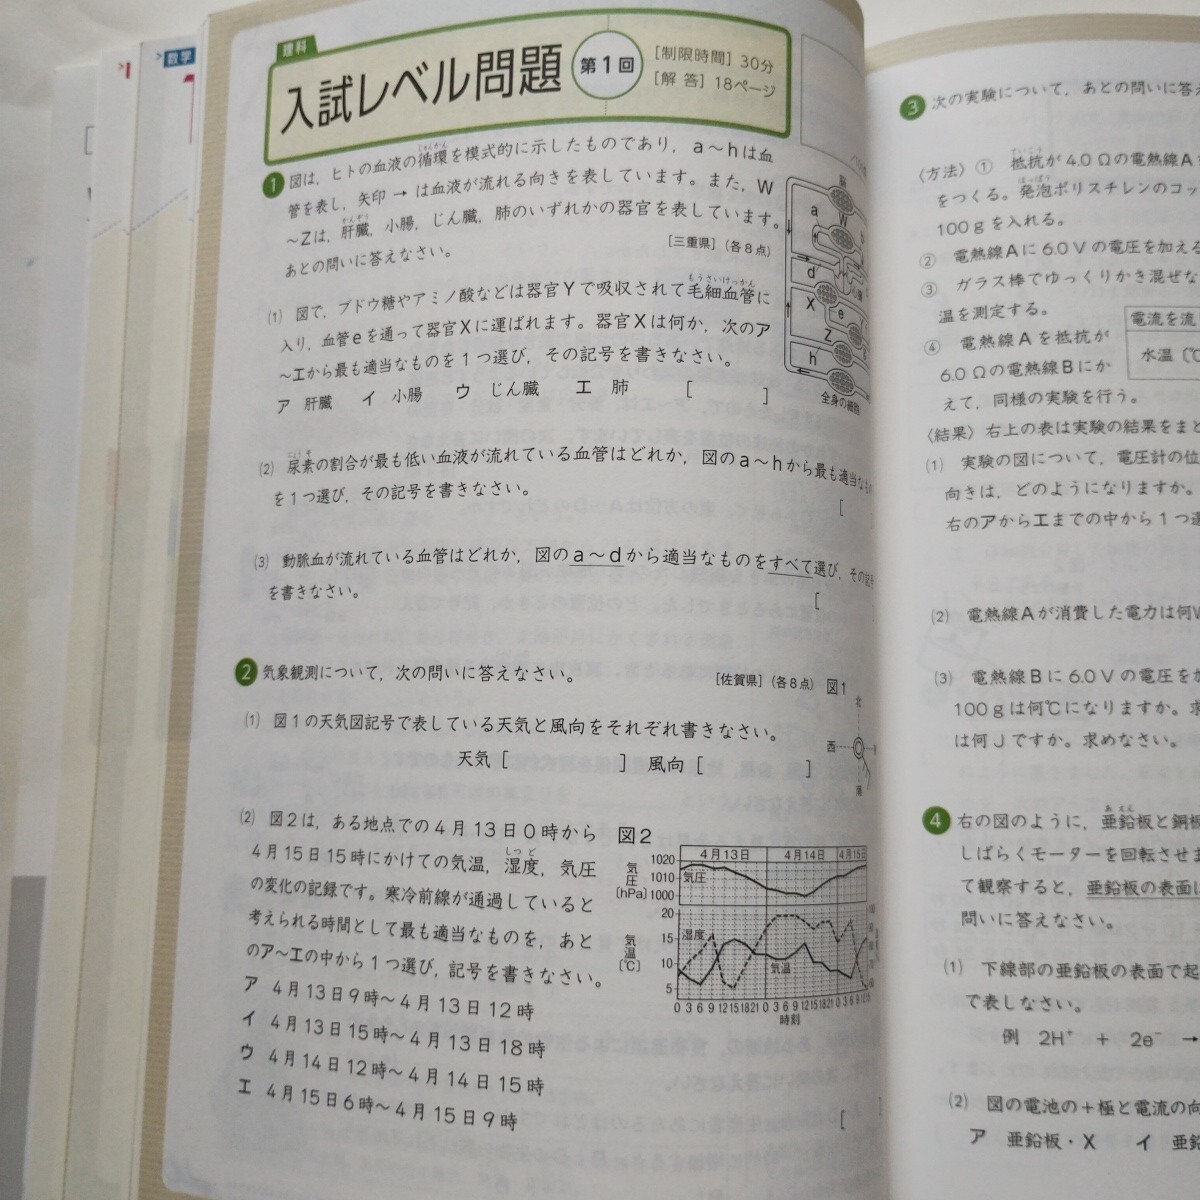 数学
理科
入試レベル問題
第1回
[制限時間] 30分
[解 答] 18ページ
1 図は，ヒトの血液の循環を模式的に示したものであり，a～hは血
管を表し，矢印 → は血液が流れる向きを表しています。また，W
～Zは，肝臓，小腸，じん臓，肺のいずれかの器官を表しています。
あとの問いに答えなさい。
[三重県]（各8点）
(1) 図で，ブドウ糖やアミノ酸などは器官Yで吸収されて毛細血管に
入り，血管eを通って器官Xに運ばれます。器官Xは何か，次のア
～エから最も適当なものを1つ選び，その記号を書きなさい。
ア 肝臓 イ 小腸 ウ じん臓 エ 肺 [ ]
a
W
b
d
X
e
Z
h
全身の細胞
(2) 尿素の割合が最も低い血液が流れている血管はどれか，図のa～hから最も適当なも
を1つ選び，その記号を書きなさい。
[
(3) 動脈血が流れている血管はどれか，図のa～dから適当なものをすべて選び，その記
を書きなさい。
[
2 気象観測について，次の問いに答えなさい。
[佐賀県]（各8点）
図1
北
西
南
(1) 図1の天気図記号で表している天気と風向をそれぞれ書きなさい。
天気 [ ] 風向 [ ]
(2) 図2は，ある地点での4月13日0時から
4月15日15時にかけての気温，湿度，気圧
の変化の記録です。寒冷前線が通過していると
考えられる時間として最も適当なものを，あと
のア～エの中から1つ選び，記号を書きなさい。
ア 4月13日9時～4月13日12時
イ 4月13日15時～4月13日18時
ウ 4月14日12時～4月14日15時
エ 4月15日6時～4月15日9時
[ ]
図2
4月13日 4月14日 4月15日
気圧 [hPa]
1020
1010
1000
気圧
気温 [℃]
20
15
10
5
湿度
気温
0 3 6 9 12 15 18 21 0 3 6 9 12 15 18 21 0 3 6 9 12 15
時刻
3 次の実験について，あとの問いに答え
〈方法〉① 抵抗が4.0Ωの電熱線A
をつくる。発泡ポリスチレンのコッ
100gを入れる。
② 電熱線Aに6.0Vの電圧を加える
③ ガラス棒でゆっくりかき混ぜな
温を測定する。
④ 電熱線Aを抵抗が
6.0Ωの電熱線Bにか
えて，同様の実験を行う。
電流を流
水温〔℃
〈結果〉右上の表は実験の結果をまと
(1) 実験の図について，電圧計の位
向きは，どのようになりますか。
右のアからエまでの中から1つ選
(2) 電熱線Aが消費した電力は何W
(3) 電熱線Bに6.0Vの電圧を加
100gは何℃になりますか。求
は何Jですか。求めなさい。
4 右の図のように，亜鉛板と銅板
しばらくモーターを回転させま
て観察すると，亜鉛板の表面に
問いに答えなさい。
(1) 下線部の亜鉛板の表面で起
で表しなさい。
例 2H⁺ + 2e⁻ →
(2) 図の電池の＋極と電流の向
ア 亜鉛板・X イ 亜鉛